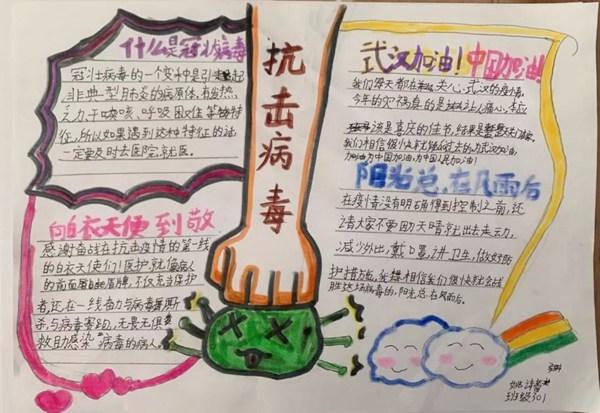 什么是冠状病毒
冠壮病毒的一个变种是引起
非典型肺炎的病原体,有发热
乏力干咳嗽、呼吸困难等等特
征,所以如果遇到这种特征的话
一定要及时去医院就医。
向白衣天使到敬
感谢奋战在抗击疫情的第一线
的白衣天使们!医护就像病人
的前面盾牌,不仅充当保护
者,还在一线奋力与病毒厮
杀,与病毒赛跑,无畏无惧
救助感染病毒的病人。
抗击病毒
武汉加油!中国加油!
我们每天都在关心武汉的疫情,
今年的灾祸真的是让人痛心,本应
该是喜庆的佳节,结果是
我们相信很快就能
加油为中国加油,为中国人民加油!
阳光总在风雨后
在疫情没有明确得到控制之前,还
请大家不要因天晴就出去走动,
减少外出,戴口罩,讲卫生,做好防
护措施,我相信我们很快就会战
胜这场病毒的,阳光总在风雨后。
班级301